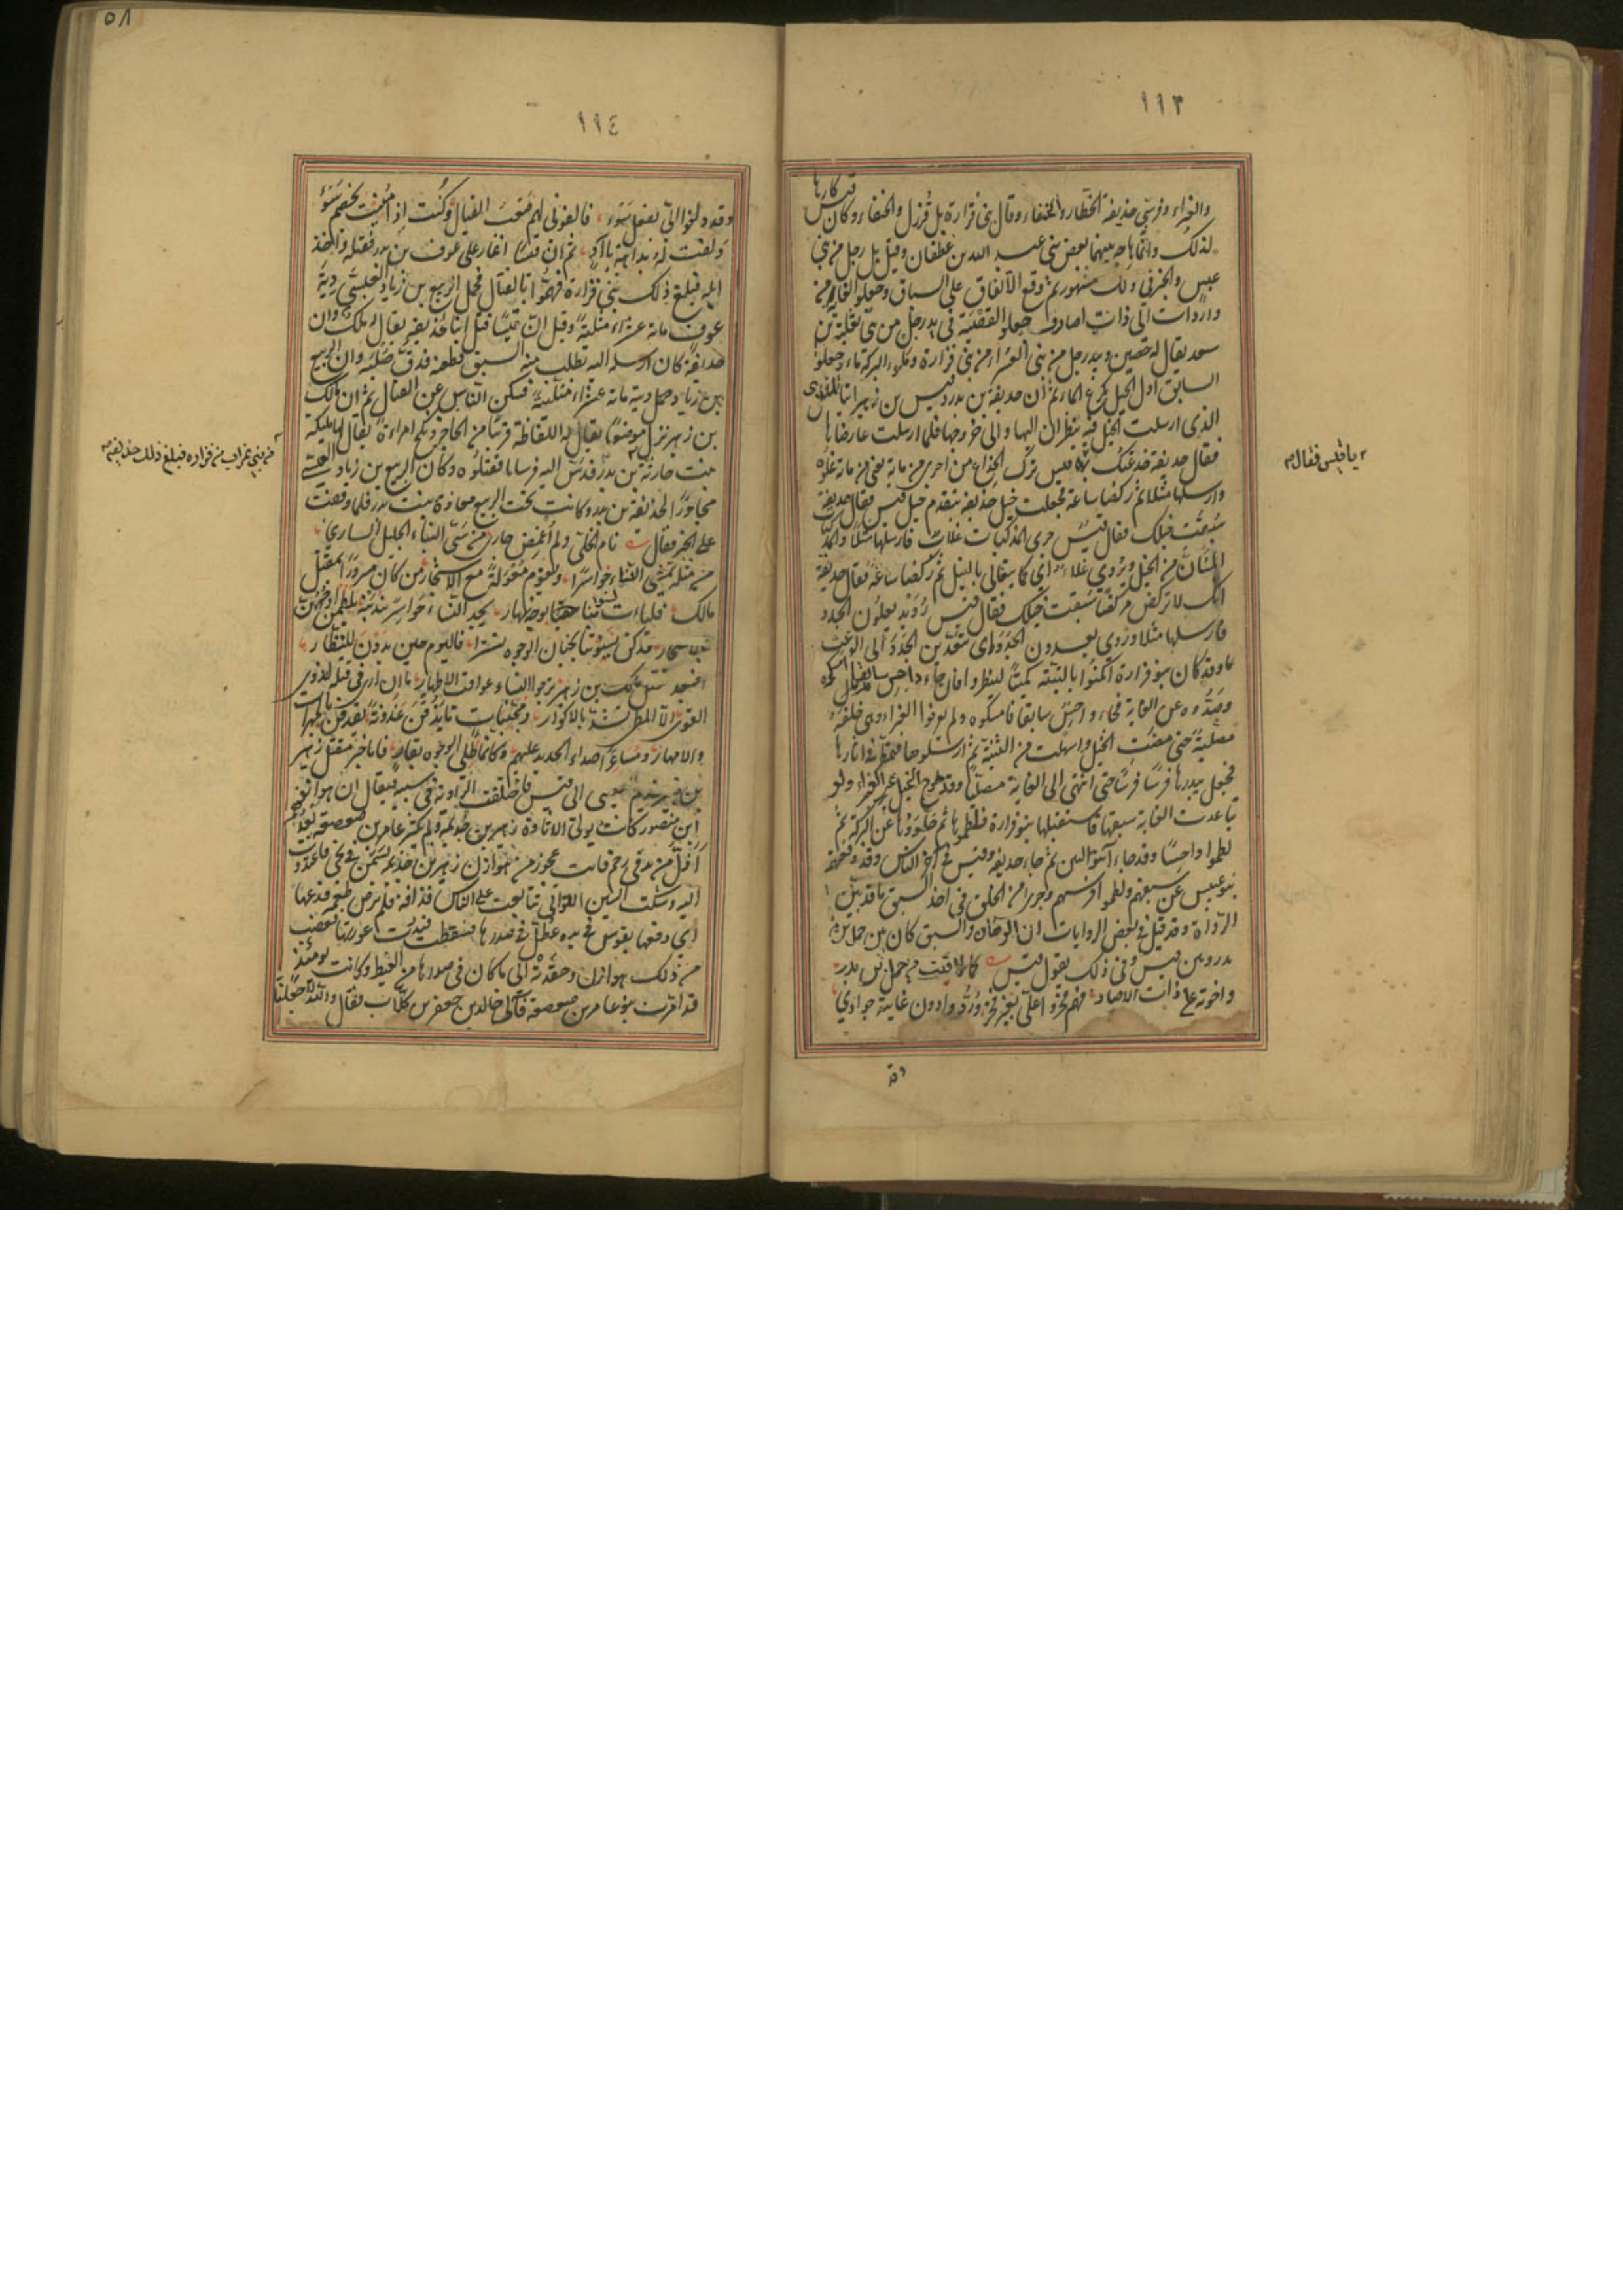 ١١٣
والغبراء وفرسي حذيفة الخطار والحنفاء وقال بني فزارة بل قرزل والحنفاء وكان قيس كارها
لذلك وانما هاجه بينهما بعض بني عبد الله بن غطفان وقيل بل رجل من بني
عبس والخبر في ذلك مشهور ثم وقع الاتفاق على السباق وجعلوا الغاية من
واردات الى ذات اصاد وجعلوا القصبة في يد رجل من بني ثعلبة بن
سعد يقال له حصين وبيد رجل من بني العشراء من بني فزارة وملوء البركة ماء وجعلوا
السابق اول الخيل يكرع الماء ثم ان حذيفة بن بدر وقيس بن زهير اتيا المدى
الذي ارسلت الخيل فيه ينظران اليها والى خروجها فلما ارسلت عارضاها
فقال حذيفة خدعتك يا قيس فقال قيس ترك الخداع من اجرى من ماية يعني من ماية غلوة
وارسلها مثلا ثم ركضا ساعة فجعلت خيل حذيفة تتقدم خيل قيس فقال حذيفة
سبقت خيلك فقال قيس جري المذكيات غلاب فارسلها مثلا والمذكيات
المسان من الخيل ويروى غلاء اي كما يتغالى بالنبل ثم ركضا ساعة فقال حذيفة
انك لا تركض مركضا سبقت خيلك فقال قيس رويد يعلون الجدد
فارسلها مثلا وروي يعدون الجدد اي يتعدين الجدد الى الوعث
وقد كان بنو فزارة اكمنوا بالثنية كمينا لينظروا فان جاء داحس سابقا امسكوه
وصدوه عن الغاية فجاء داحس سابقا فامسكوه ولم يعرفوا الغبراء وهي خلفه
مصلية حتى مضت الخيل واسهلت من الثنية ثم ارسلوها فتمطر في اثارها
فجعل يبدرها فرسا فرسا حتى انتهى الى الغاية مصليا وقد طرح الخيل غير الغبراء ولو
تباعدت الغاية سبقها فاستقبلها بنو فزارة فلطموها ثم حلؤوها عن البركة ثم
لطموا داحسا وقد جاء متوالين ثم جاء حذيفة وقيس في آخر الناس وقد دفعتهم
بنو عبس عن سبقهم ولطموا افرسهم وجرى من الخلف في اخذ السبق ما قد بين
الرواة وقد قيل في بعض الروايات ان الرهان والسبق كان بين حمل بن
بدر وبين قيس وفي ذلك يقول قيس كما لاقيت من حمل بن بدر
واخوته على ذات الاصاد هم فخروا علي بغير فخر وردوا دون غايته جوادي
وقد
يا قيس فقال
٥٨
١١٤
وقد دلفوا الي بفعل سوء فالفوني لهم صعب القياد وكنت اذا منيت بخصم سوء
دلفت له بداهية نآد ثم ان قيسا اغار على عوف بن بدر فقتله واخذ
ابله فبلغ ذلك بني فزارة فهموا بالقتال فحمل الربيع بن زياد العبسي دية
عوف مائة عشراء متلية وقيل ان قيسا قتل ابنا لحذيفة يقال له مالك وان
حذيفة كان ارسله اليه يطلب منه السبق فطعنه فدق صلبه وان الربيع
بن زياد حمل ديته مائة عشراء متلية فسكن الناس عن القتال ثم ان مالك
بن زهير نزل موضعا يقال له اللقاظة قريبا من الحاجر ونكح امراءة يقال لها مليكة
بنت حارثة من بني غراب من فزارة فبلغ ذلك حذيفة بن بدر فدس اليه فرسانا فقتلوه وكان الربيع بن زياد العبسي
مجاورا لحذيفة بن بدر وكانت تحت الربيع معاذة بنت بدر فلما وقفت
على الخبر فقال نام الخلي ولم اغمض حار من سئ النباء الجليل الساري
من مثله تمشي النساء حواسرا وتقوم معولة مع الاسحار من كان مسرورا بمقتل
مالك فليات نسوتنا بوجه نهار يجد النساء حواسر يندبنه يلطمن اوجههن
بالاسحار قد كن يسترن الوجوه تسترا فاليوم حين بدون للنظار
افبعد مقتل مالك بن زهير ترجوا النساء عواقب الاطهار ما ان ارى في قتله لذوي
القوى الا المطي تشد بالاكوار ومجنبات ما يذقن عذوفة يقذفن بالمهرات
والامهار ومساعرا صداء الحديد عليهم وكانما طلي الوجوه بقار
ابن منصور كانت يولي الاتاوة زهير بن جذيمة ولم تكثر عامر بن صعصعة بعد فهم
اذل من يد في رحم فاتت عجوز من هوازن زهير بن جذيمة بسمن في نحي فاعتذرت
اليه وشكت السنين اللواتي تتابعت على الناس فذاقه فلم يرض طعمه فدعها
اي دفعها بقوس في يده عطل في صدرها فسقطت فبدت عورتها فغضب
من ذلك هوازن وحقدته الى ما كان في صدرها من الغيظ وكانت يومئذ
قد امرت بنو عامر بن صعصعة فآلى خالد بن جعفر بن كلاب فقال والله لاجعلن
من بني غراب من فزاره فبلغ ذلك حذيفه